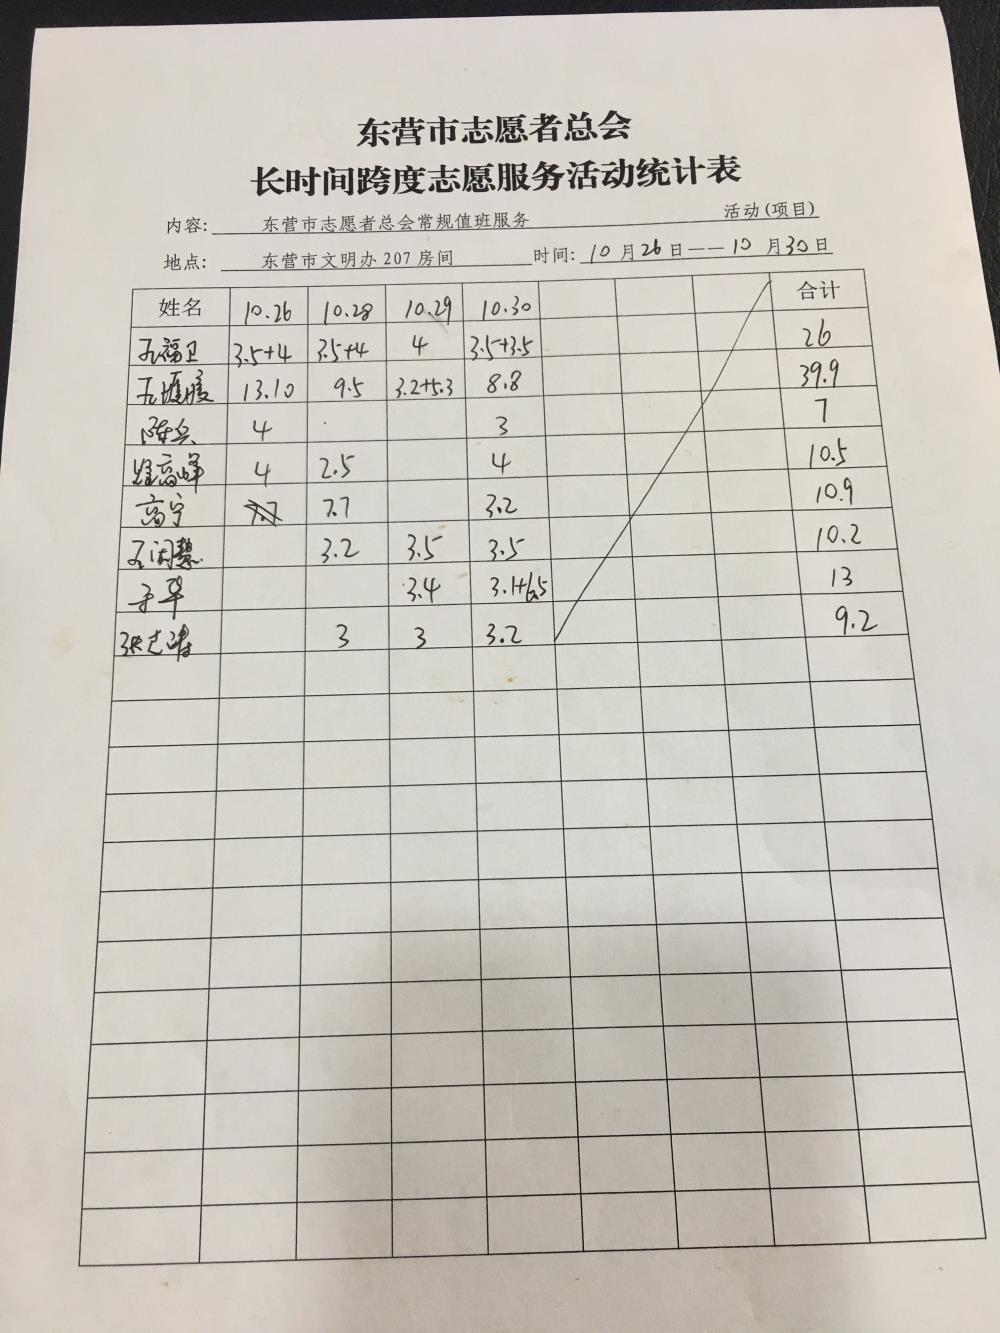 东营市志愿者总会
长时间跨度志愿服务活动统计表
内容: 东营市志愿者总会常规值班服务 活动(项目)
地点: 东营市文明办207房间 时间: 10月26日——10月30日
姓名 10.26 10.28 10.29 10.30 合计
王福卫 3.5+4 3.5+4 4 3.5+3.5 26
王 13.10 9.5 3.2+5.3 8.8 39.9
陈兵 4 3 7
高峰 4 2.5 4 10.5
高宁 7.7 7.7 3.2 10.9
王闰慧 3.2 3.5 3.5 10.2
于华 3.4 3.1+6.5 13
张志涛 3 3 3.2 9.2